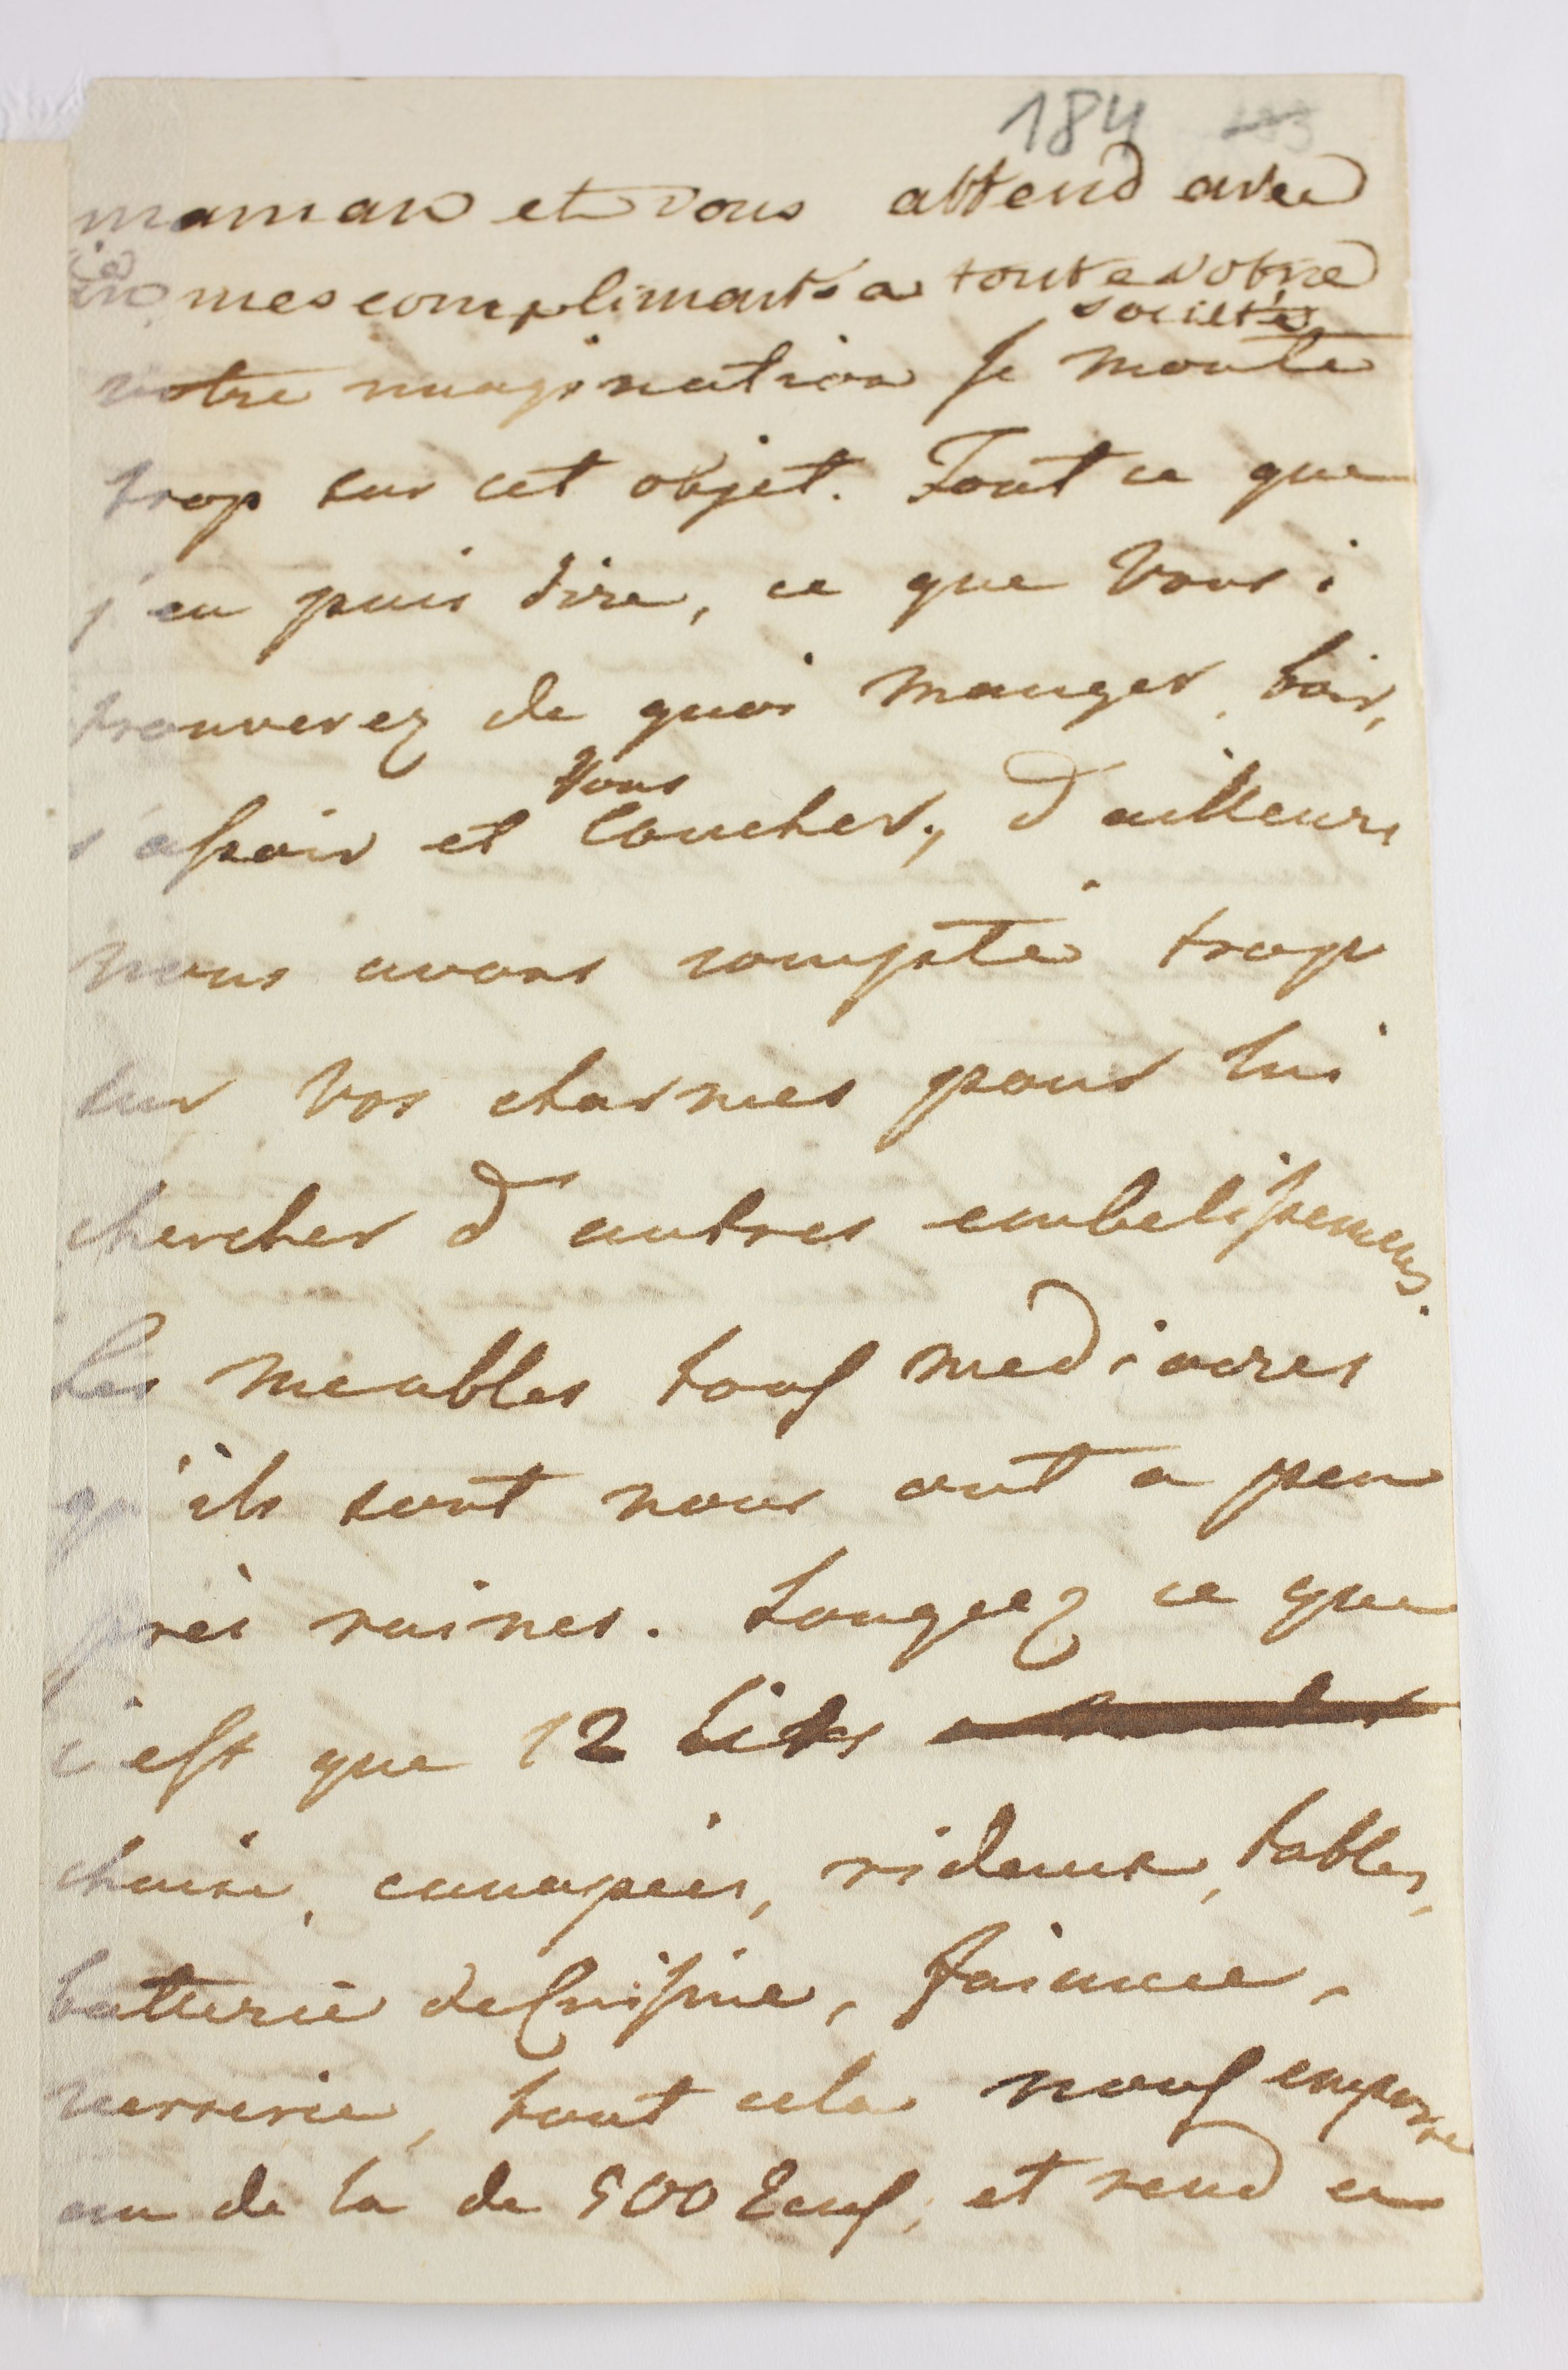 184
maman et vous attend avec
mes complimants a toute votre
societé
votre imagination se monte
trop sur cet objet. Tout ce que
j'en puis dire, ce que vous i
trouverez de quoi manger, boir,
s'assoir et vous coucher, d'ailleurs
nous avons compté trop
sur vos charmes pour lui
chercher d'autres embelissemens.
Les meubles tous mediocres
qu'ils sont nous ont a peu
près ruinés. Songeez ce que
c'est que 12 lits
chaise, canapées, rideaux, tables,
batterie de Cuissine, faiance,
verrerie, tout cela nous emporte
au de la de 500 Ecus, et rend en